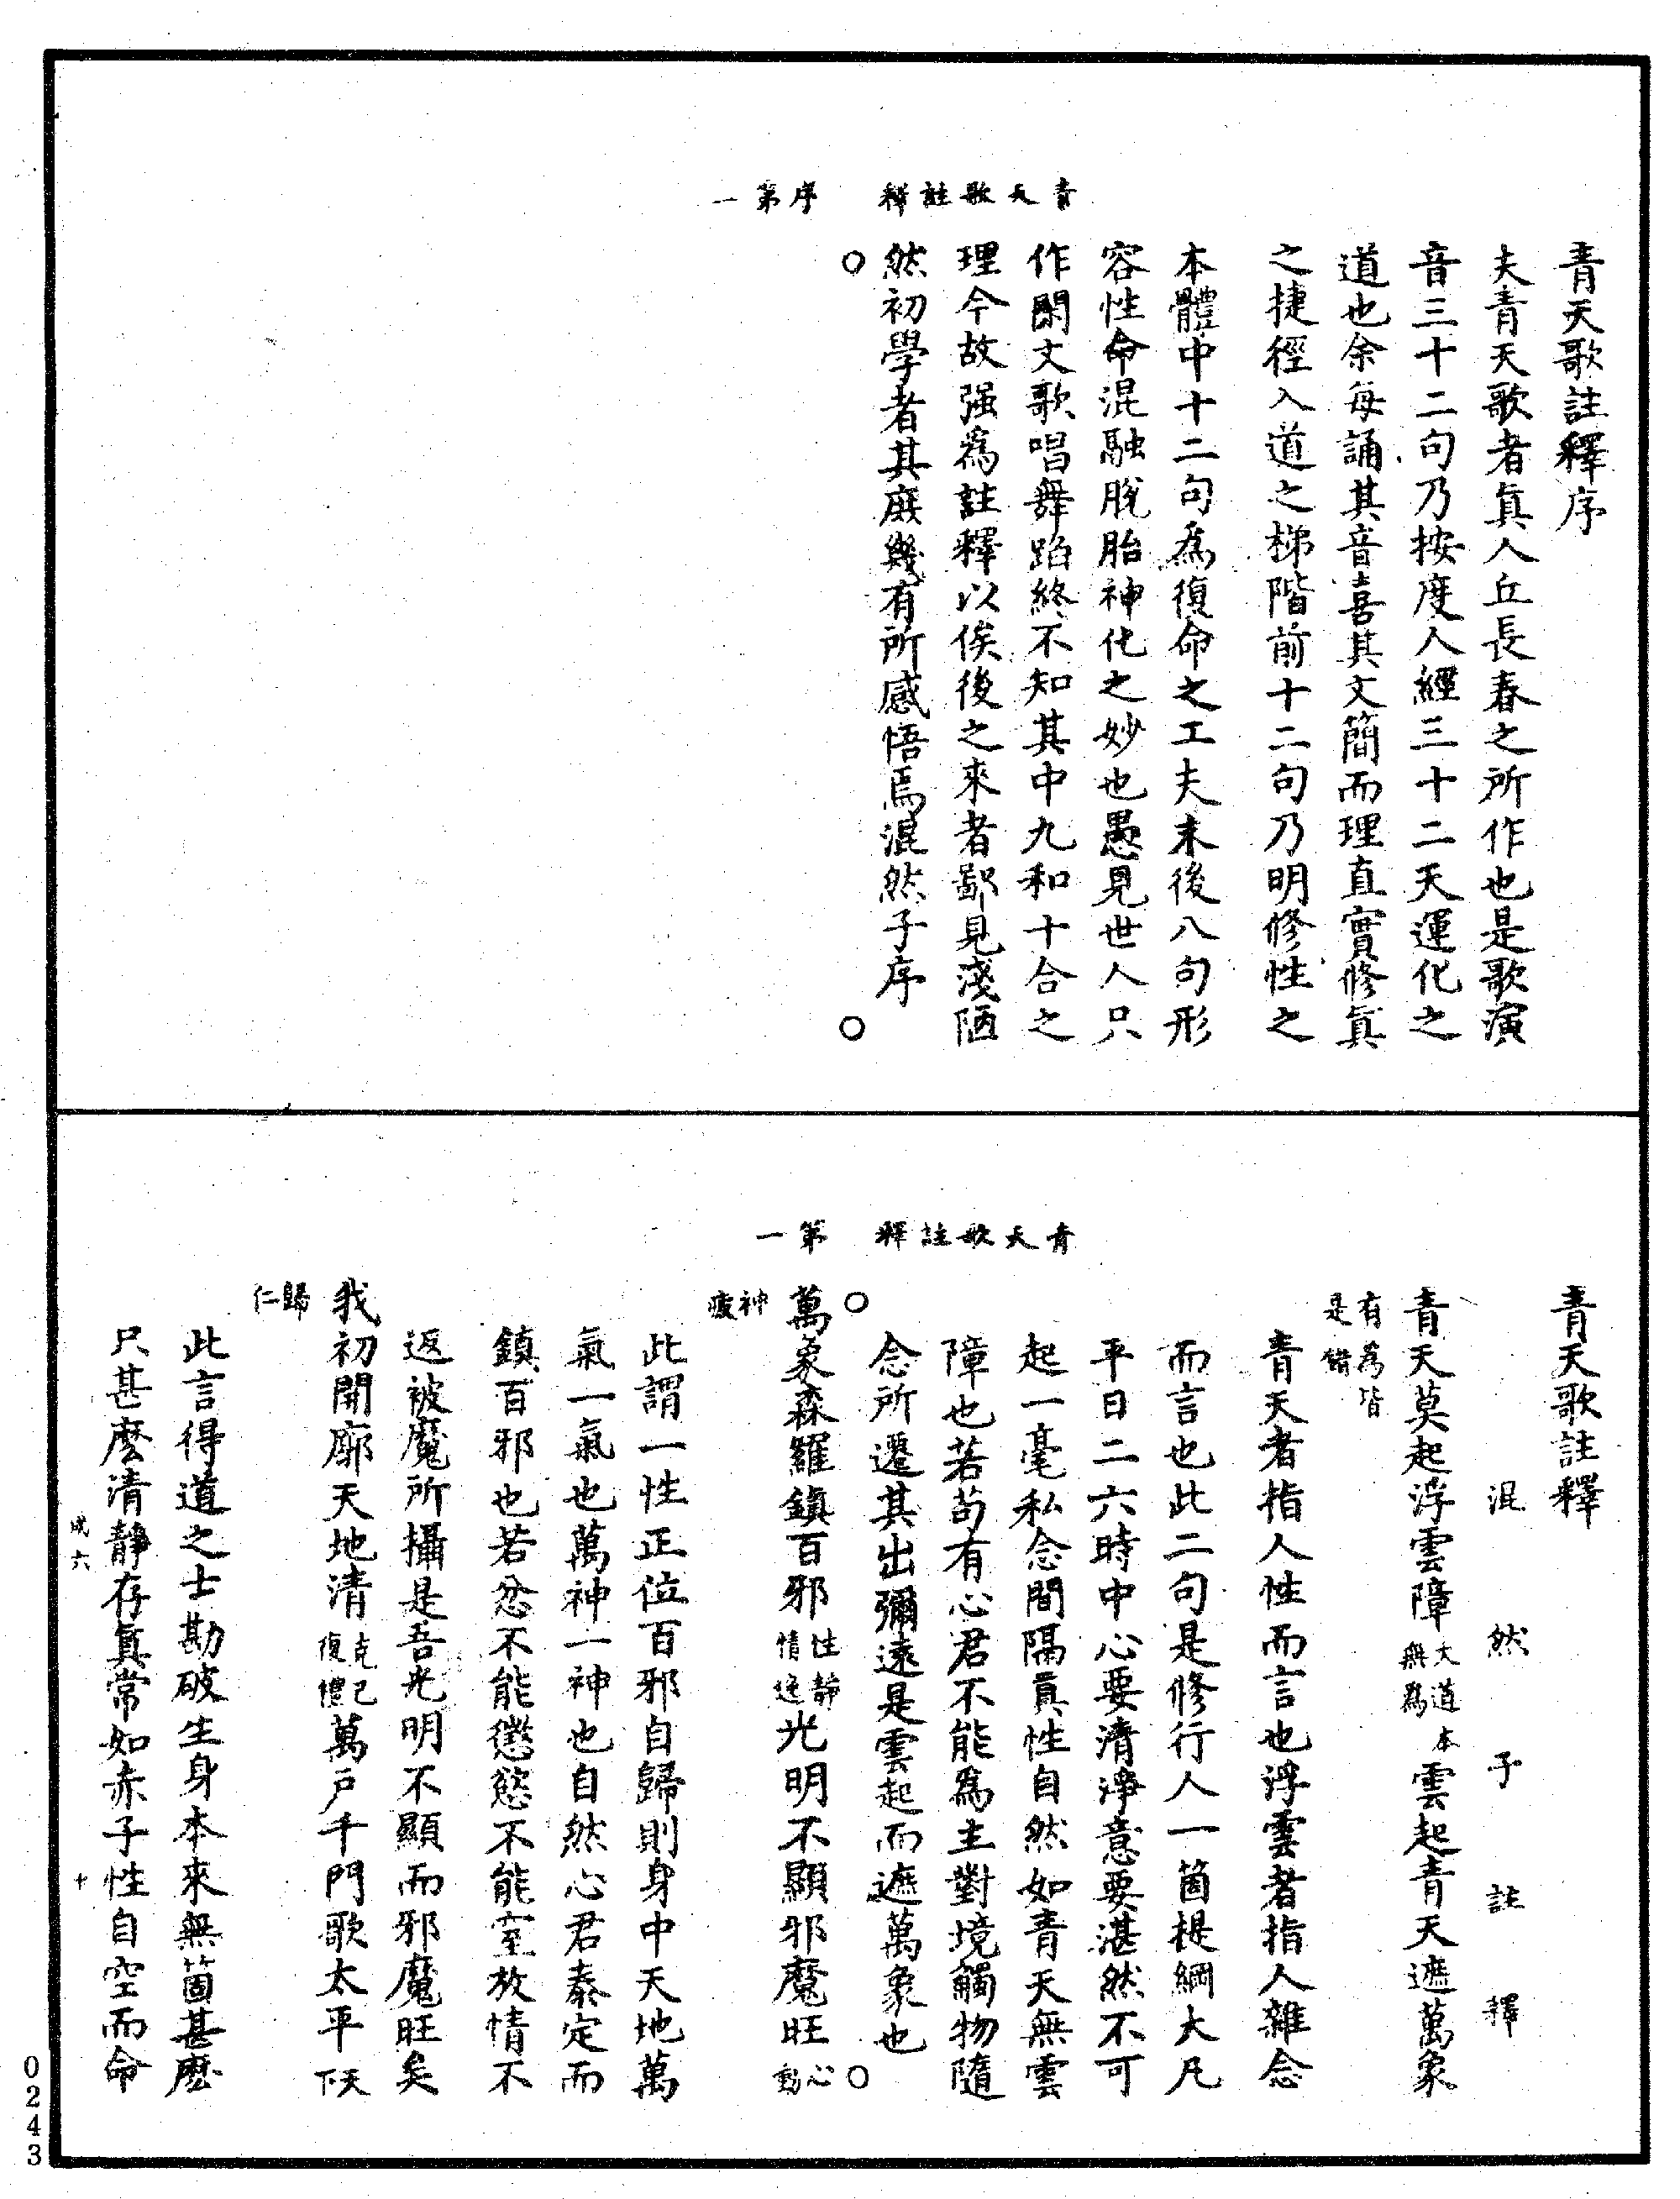 青天歌註釋序
夫青天歌者眞人丘長春之所作也是歌演
音三十二句乃按度人經三十二天運化之
道也余每誦其音喜其文簡而理直實修眞
之捷徑入道之梯階前十二句乃明修性之
本體中十二句爲復命之工夫末後八句形
容性命混融脫胎神化之妙也愚見世人只
作閑文歌唱舞蹈終不知其中九和十合之
理今故强爲註釋以俟後之來者鄙見淺陋
然初學者其庶幾有所感悟焉混然子序
青天歌註釋 序第一
青天歌註釋
混然子註釋
青天莫起浮雲障大道本無爲雲起青天遮萬象
有爲皆是錯
青天者指人性而言也浮雲者指人雜念
而言也此二句是修行人一箇提綱大凡
平日二六時中心要清淨意要湛然不可
起一毫私念間隔眞性自然如青天無雲
障也若苟有心君不能爲主對境觸物隨
念所遷其出彌遠是雲起而遮萬象也
青天歌註釋 第一
萬象森羅鎮百邪性靜情逸光明不顯邪魔旺心動
神疲
此謂一性正位百邪自歸則身中天地萬
氣一氣也萬神一神也自然心君泰定而
鎮百邪也若忿不能懲慾不能窒放情不
返被魔所攝是吾光明不顯而邪魔旺矣
我初開廓天地清克己復禮萬戶千門歌太平天下
歸仁
此言得道之士勘破生身本來無箇甚麽
只甚麽清靜存眞常如赤子性自空而命
成六
十
0243